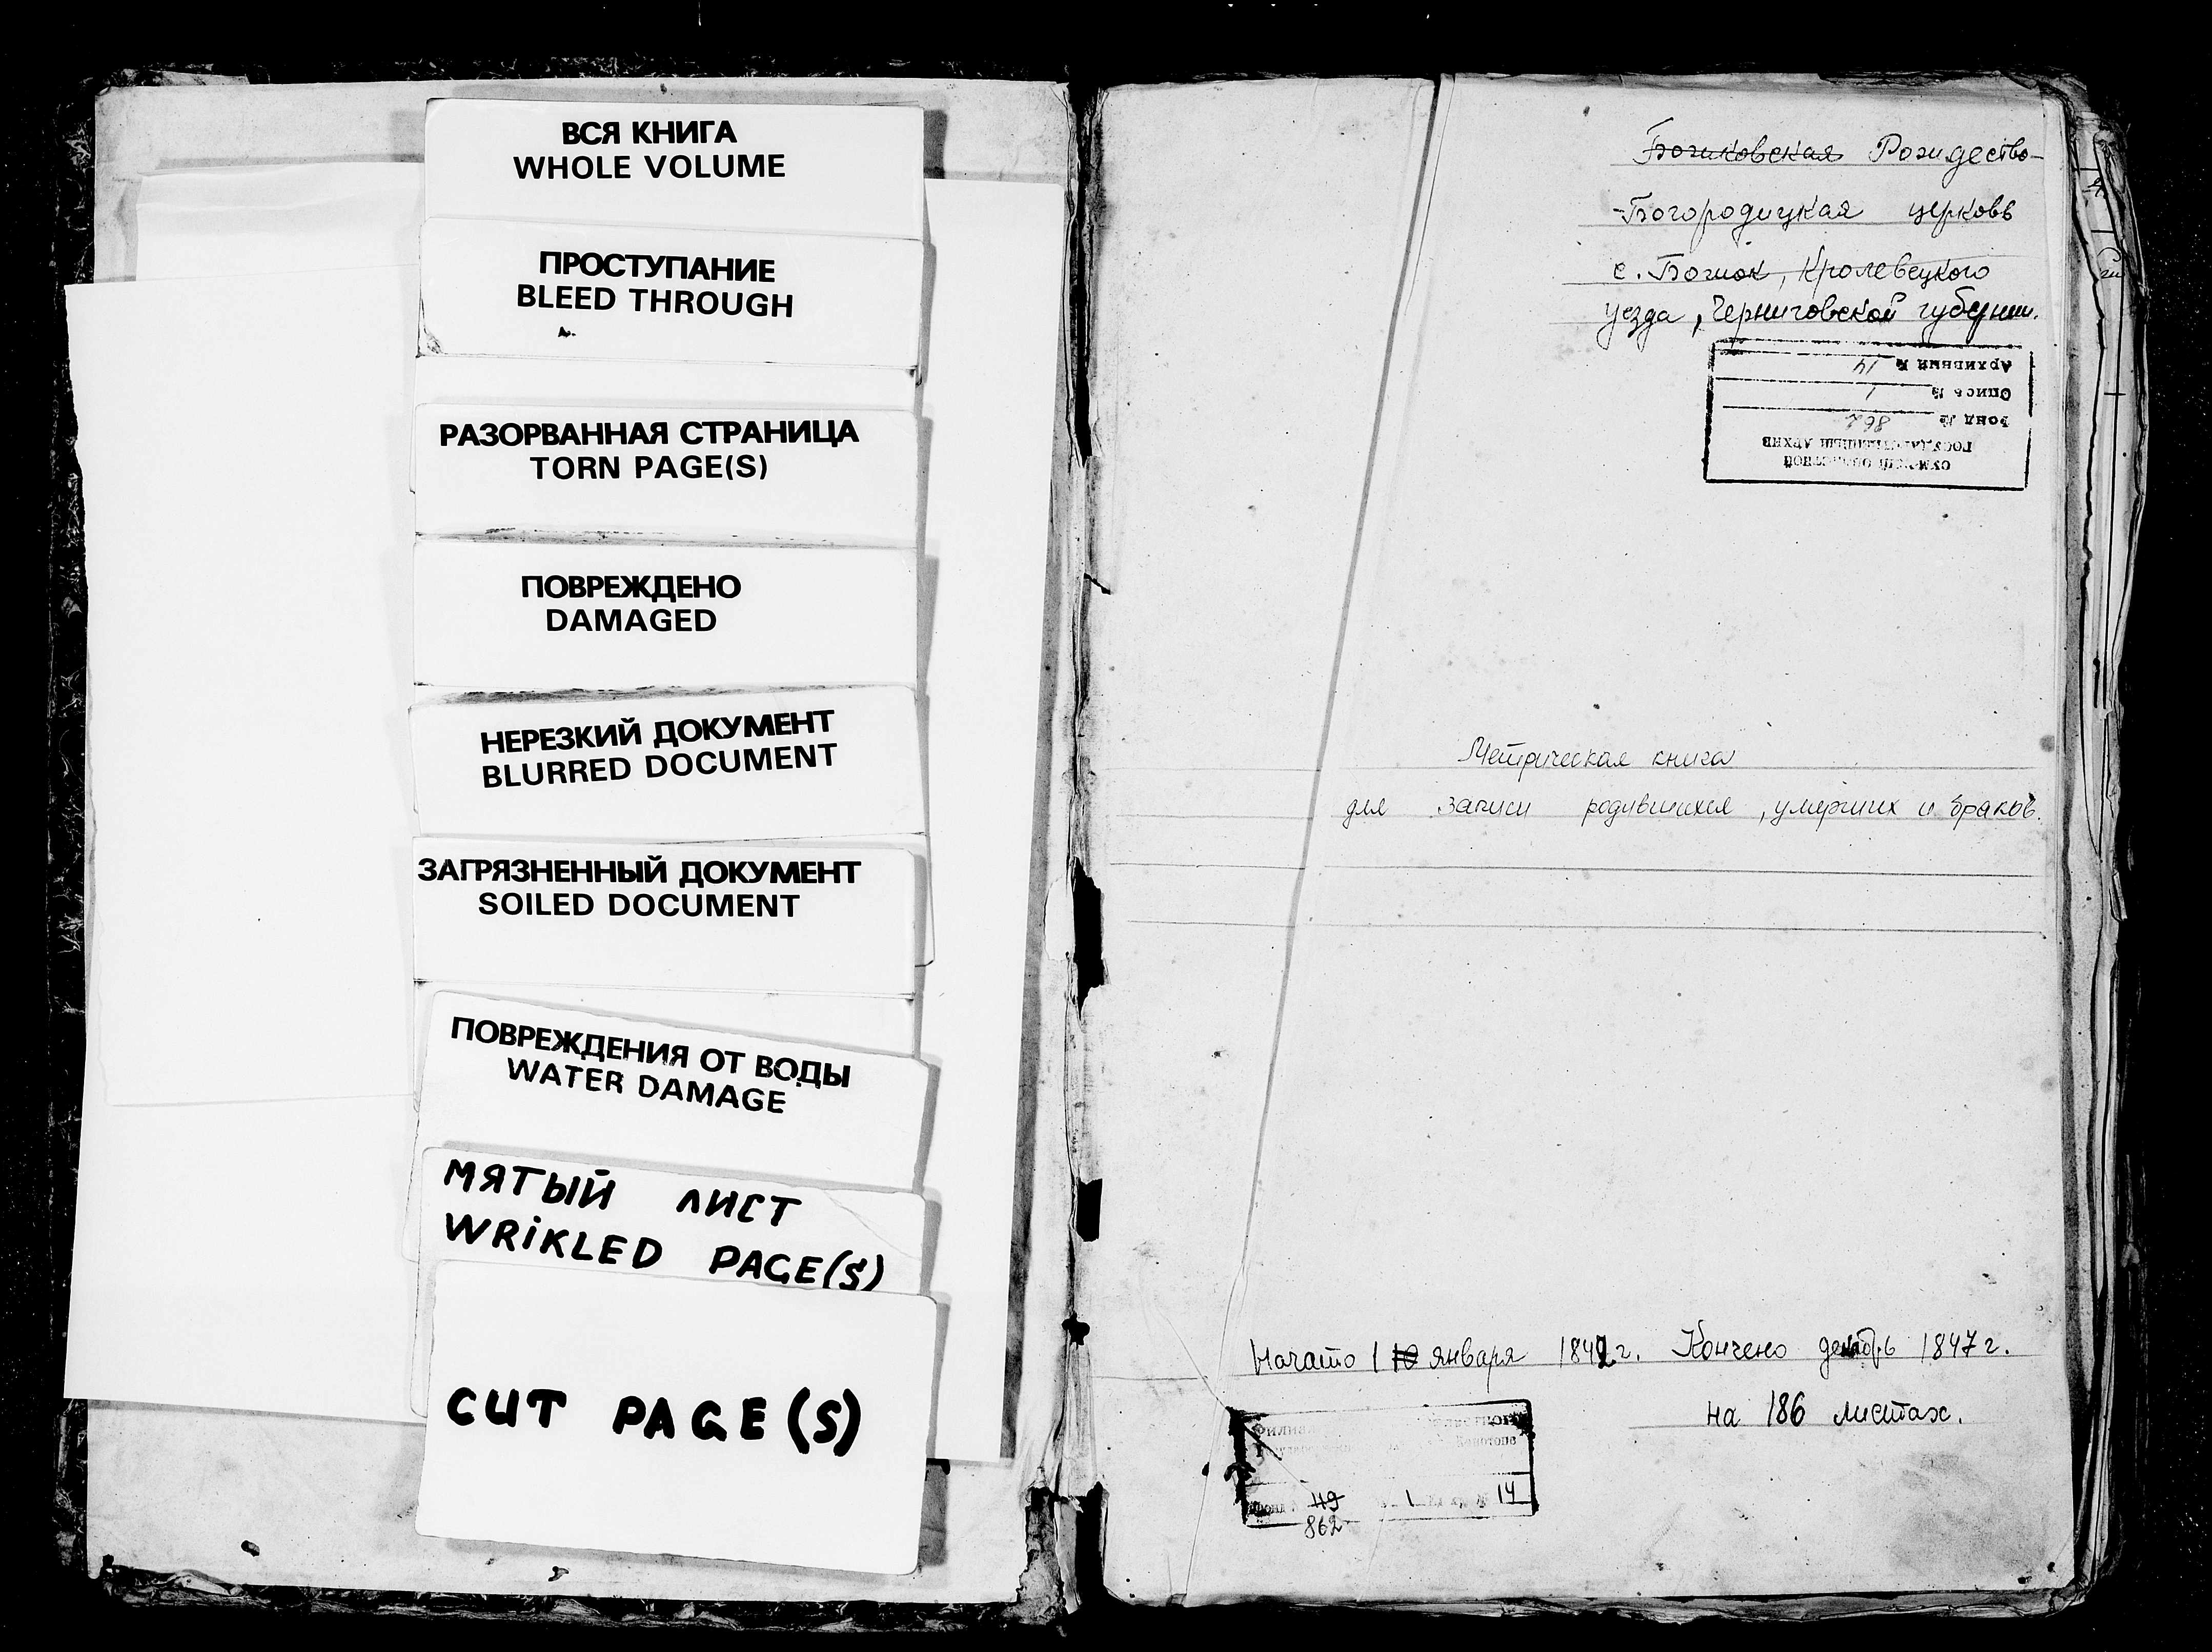 ВСЯ КНИГА
WHOLE VOLUME
ПРОСТУПАНИЕ
BLEED THROUGH
РАЗОРВАННАЯ СТРАНИЦА
TORN PAGE(S)
ПОВРЕЖДЕНО
DAMAGED
НЕРЕЗКИЙ ДОКУМЕНТ
BLURRED DOCUMENT
ЗАГРЯЗНЕННЫЙ ДОКУМЕНТ
SOILED DOCUMENT
ПОВРЕЖДЕНИЯ ОТ ВОДЫ
WATER DAMAGE
МЯТЫЙ ЛИСТ
WRIKLED PAGE(S)
CUT PAGE(S)
Рождество-
-Богородицкая церковь
с. Божок, Кролевецкого
уезда, Черниговской губернии.
СУМСКИЙ ОБЛАСТНОЙ
ГОСУДАРСТВЕННЫЙ АРХИВ
Фонд № 862
Опись № 1
Архивный № 14
Метрическая книга
для записи родившихся, умерших и браков.
Начато 1 10 января 1842 г. Кончено декабрь 1847 г.
на 186 листах.
49 1 14
862